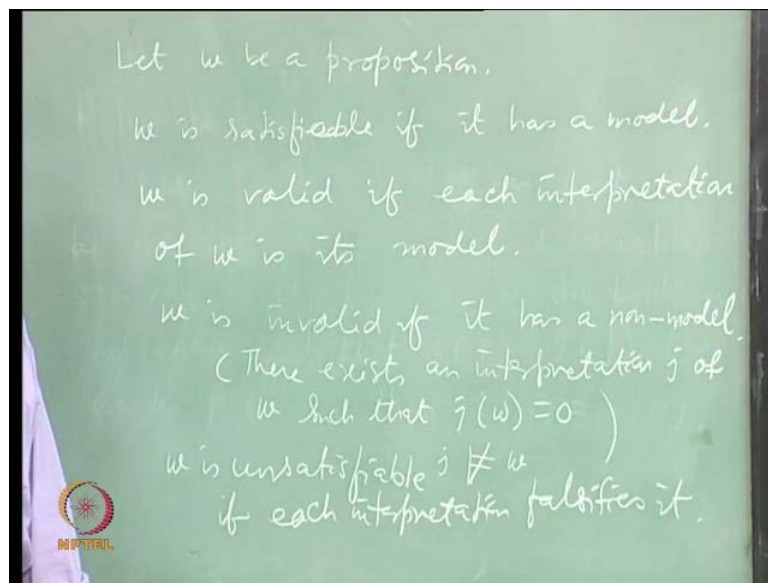 Let w be a proposition.
w is satisfiable if it has a model.
w is valid if each interpretation
of w is its model.
w is invalid if it has a non-model.
(There exists an interpretation j of
w such that j(w) = 0 )
w is unsatisfiable j ⊭ w
if each interpretation falsifies it.
NPTEL